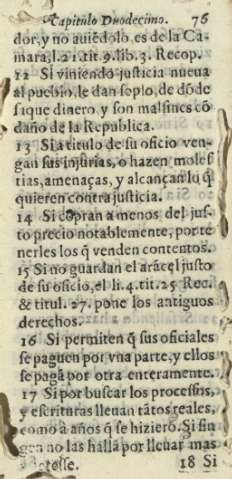 Capitulo Duodecimo. 76
dor, y no auiẽdolo, es de la Ca-
mara, l. 21. tit. 9. lib. 3. Recop.
12 Si viniendo justicia nueua
al pueblo, le dan soplo, de dõde
saque dinero, y son malsines cõ
daño de la Republica.
13 Si a titulo de su oficio ven-
gan sus injurias, o hazen moles
tias, amenaças, y alcançan lo q̃
quieren contra justicia.
14 Si cõpran a menos del jus-
to precio notablemente, por te-
nerles los q̃ venden contentos.
15 Si no guardan el arãcel justo
de su oficio, el li. 4. tit. 25 Rec.
& titul. 27. pone los antiguos
derechos.
16 Si permiten q̃ sus oficiales
se paguen por vna parte, y ellos
se pagã por otra enteramente.
17 Si por buscar los processos,
y escrituras lleuan tãtos reales,
como a años q̃ se hizierõ. Si fin
gen no las hallã por lleuar mas
18 Si